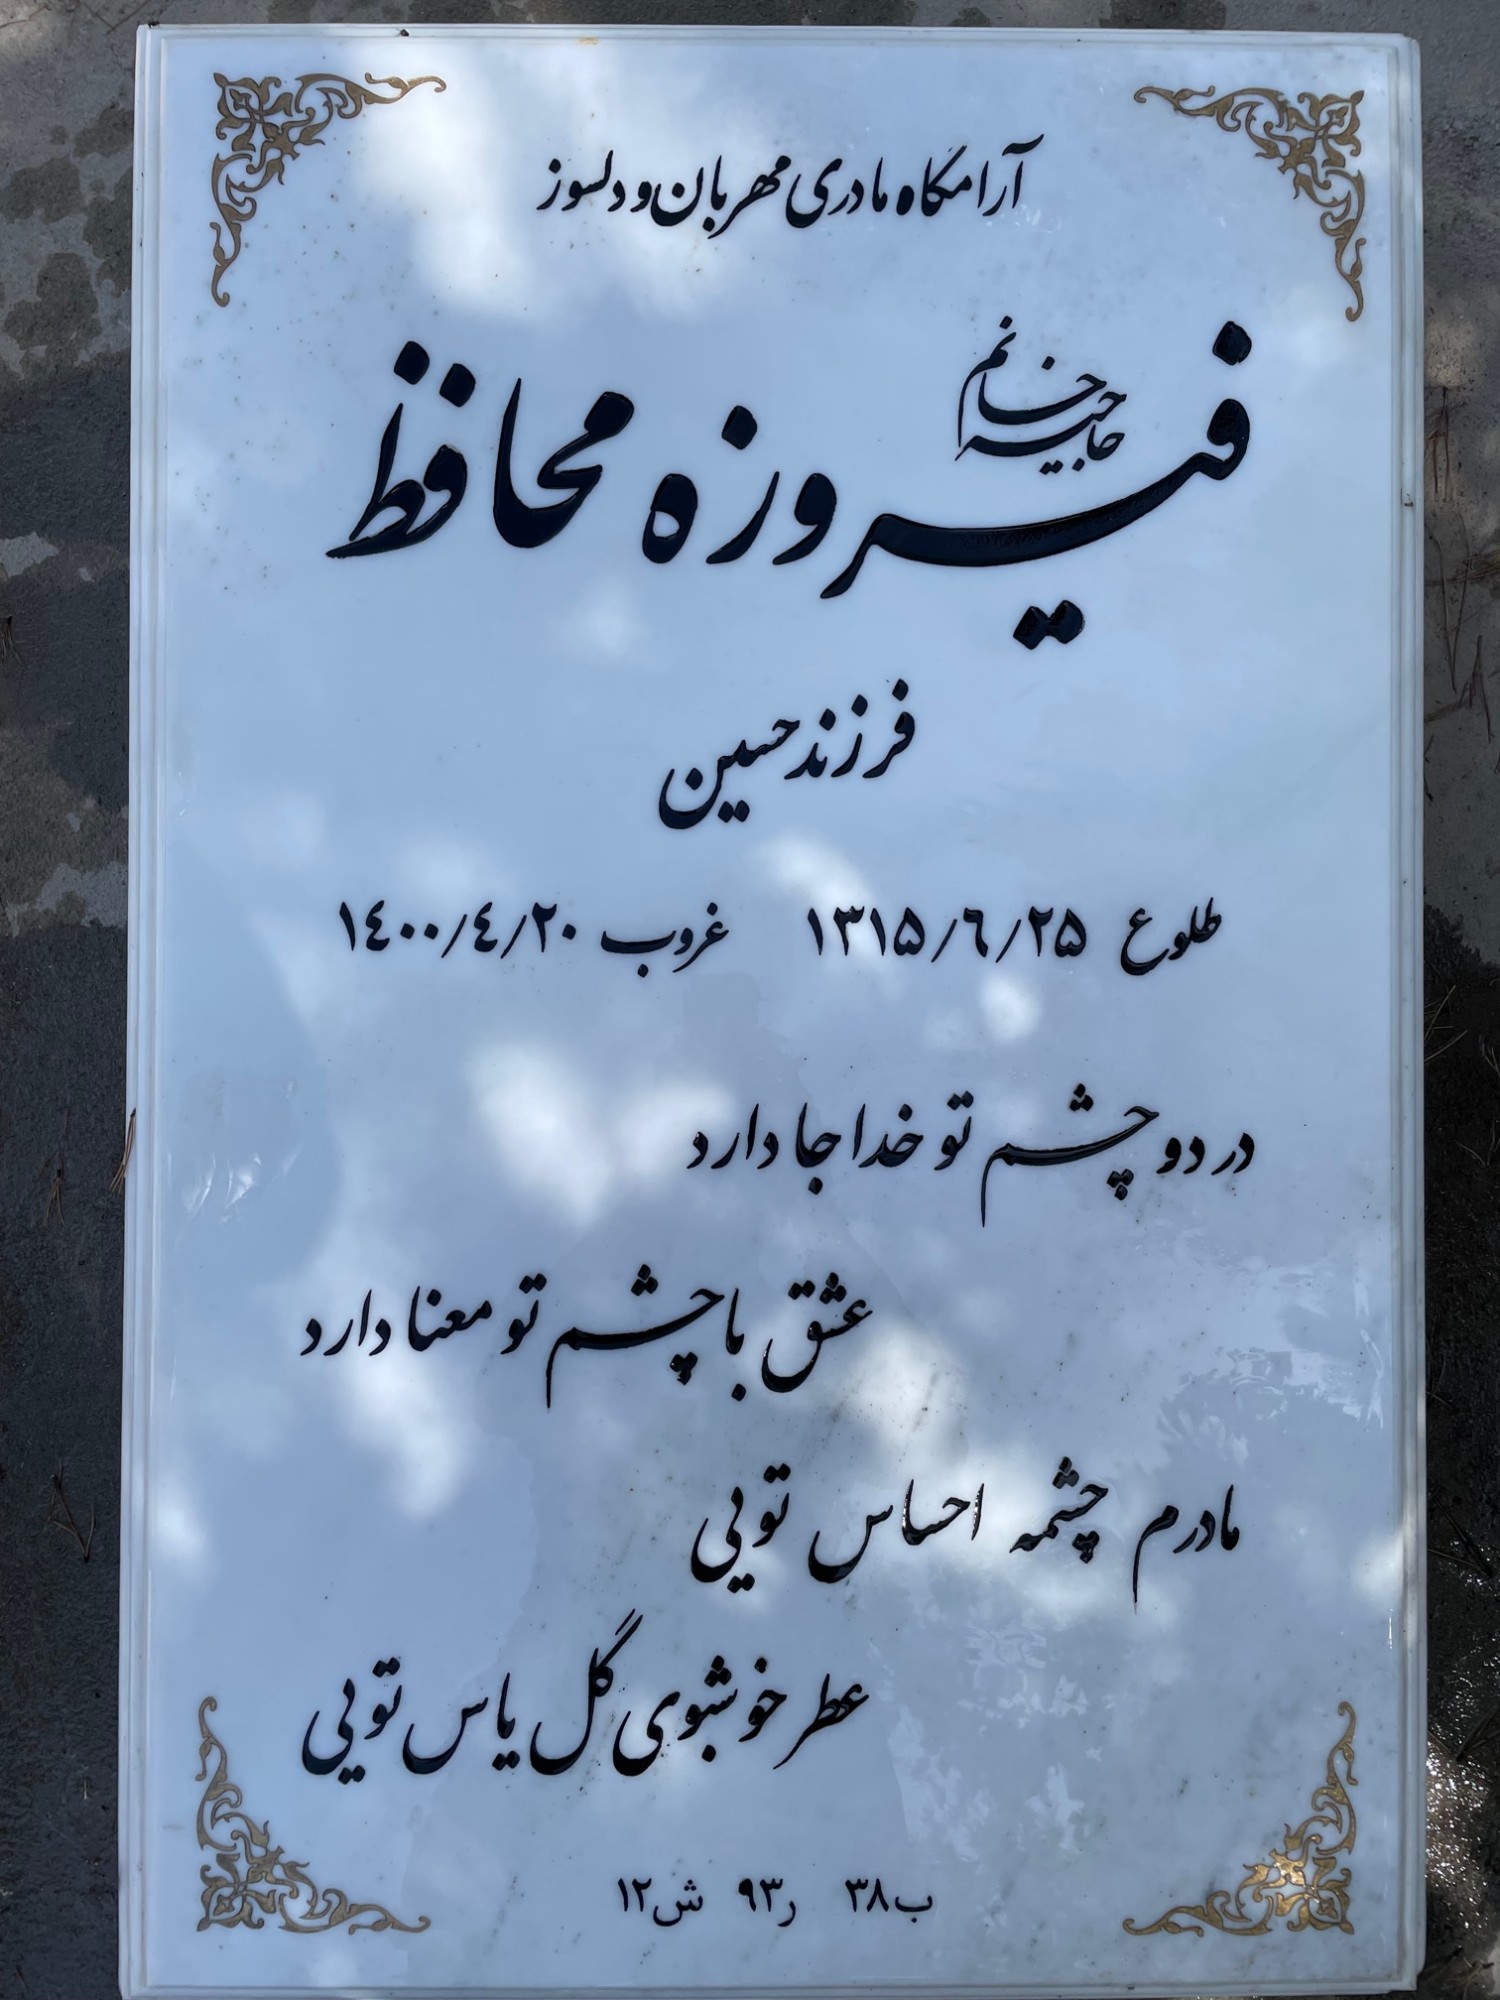 آرامگاه مادری مهربان و دلسوز
حاجیه خانم
فیروزه محافظ
فرزند حسین
طلوع ۱۳۱۵/۶/۲۵ غروب ۱۴۰۰/۴/۲۰
در دو چشم تو خدا جا دارد
عشق با چشم تو معنا دارد
مادرم چشمه احساس تویی
عطر خوشبوی گل یاس تویی
ب۳۸ ر۹۳ ش۱۲